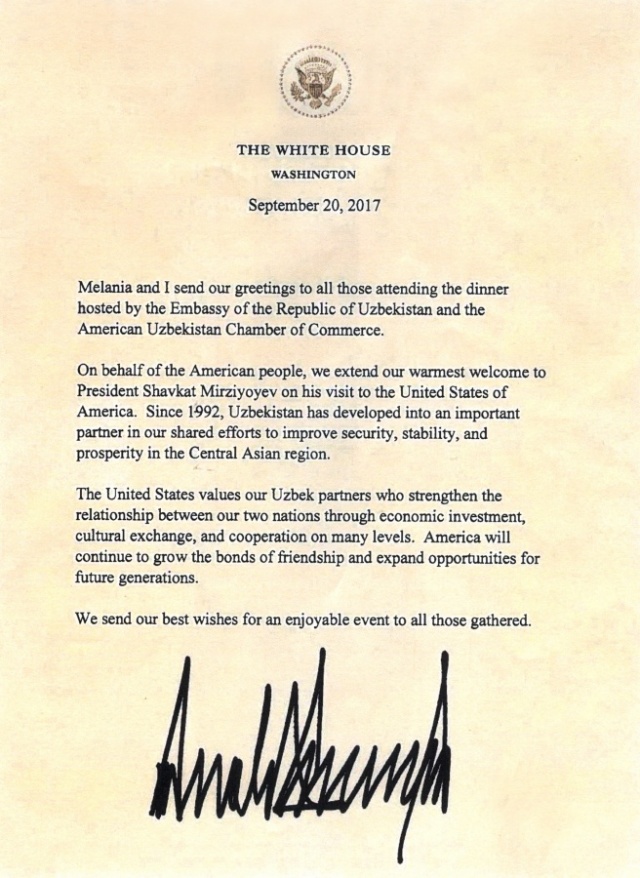 THE WHITE HOUSE
WASHINGTON
September 20, 2017
Melania and I send our greetings to all those attending the dinner
hosted by the Embassy of the Republic of Uzbekistan and the
American Uzbekistan Chamber of Commerce.
On behalf of the American people, we extend our warmest welcome to
President Shavkat Mirziyoyev on his visit to the United States of
America. Since 1992, Uzbekistan has developed into an important
partner in our shared efforts to improve security, stability, and
prosperity in the Central Asian region.
The United States values our Uzbek partners who strengthen the
relationship between our two nations through economic investment,
cultural exchange, and cooperation on many levels. America will
continue to grow the bonds of friendship and expand opportunities for
future generations.
We send our best wishes for an enjoyable event to all those gathered.